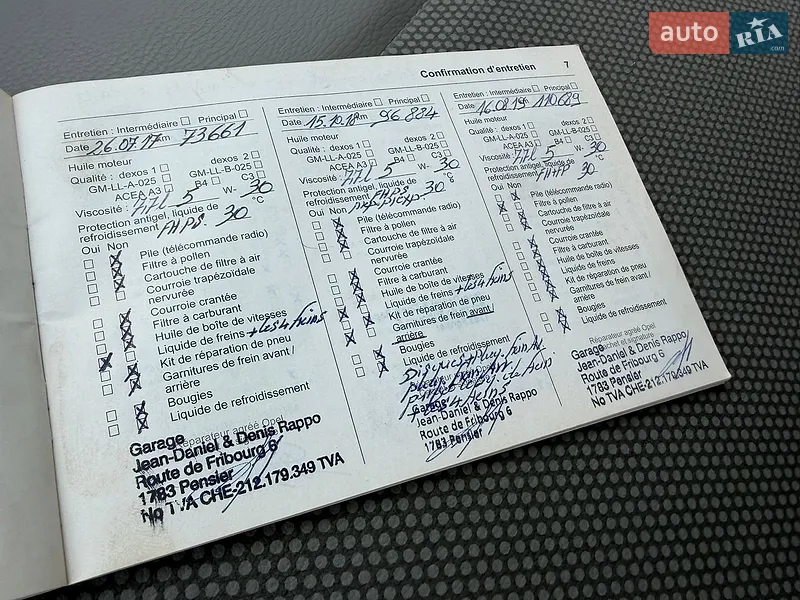 auto RIA .com
Confirmation d'entretien 7
Entretien : Intermédiaire Principal
Date 26.07.17 km 73661
Huile moteur
Qualité : dexos 1 dexos 2
GM-LL-A-025 GM-LL-B-025
ACEA A3 B4 C3
Viscosité : 5 W- 30
Protection antigel, liquide de
refroidissement 30 °C
Oui Non
Pile (télécommande radio)
Filtre à pollen
Cartouche de filtre à air
Courroie trapézoïdale
nervurée
Courroie crantée
Filtre à carburant
Huile de boîte de vitesses
Liquide de freins + les 4 freins
Kit de réparation de pneu
Garnitures de frein avant /
arrière
Bougies
Liquide de refroidissement
Réparateur agréé Opel
Garage
Jean-Daniel & Denis Rappo
Route de Fribourg 6
1783 Pensier
No TVA CHE-212.179.349 TVA
Entretien : Intermédiaire Principal
Date 15.10.18 km 96884
Huile moteur
Qualité : dexos 1 dexos 2
GM-LL-A-025 GM-LL-B-025
ACEA A3 B4 C3
Viscosité : 5 W- 30
Protection antigel, liquide de
refroidissement 30 °C
Oui Non
Pile (télécommande radio)
Filtre à pollen
Cartouche de filtre à air
Courroie trapézoïdale
nervurée
Courroie crantée
Filtre à carburant
Huile de boîte de vitesses
Liquide de freins + les 4 freins
Kit de réparation de pneu
Garnitures de frein avant /
arrière
Bougies
Liquide de refroidissement
Garage
Jean-Daniel & Denis Rappo
Route de Fribourg 6
1783 Pensier
Entretien : Intermédiaire Principal
Date 16.08.19 km 110689
Huile moteur
Qualité : dexos 1 dexos 2
GM-LL-A-025 GM-LL-B-025
ACEA A3 B4 C3
Viscosité : 5 W- 30
Protection antigel, liquide de
refroidissement 30 °C
Oui Non
Pile (télécommande radio)
Filtre à pollen
Cartouche de filtre à air
Courroie trapézoïdale
nervurée
Courroie crantée
Filtre à carburant
Huile de boîte de vitesses
Liquide de freins
Kit de réparation de pneu
Garnitures de frein avant /
arrière
Bougies
Liquide de refroidissement
Réparateur agréé Opel
Cachet et signature
Garage
Jean-Daniel & Denis Rappo
Route de Fribourg 6
1783 Pensier
No TVA CHE-212.179.349 TVA